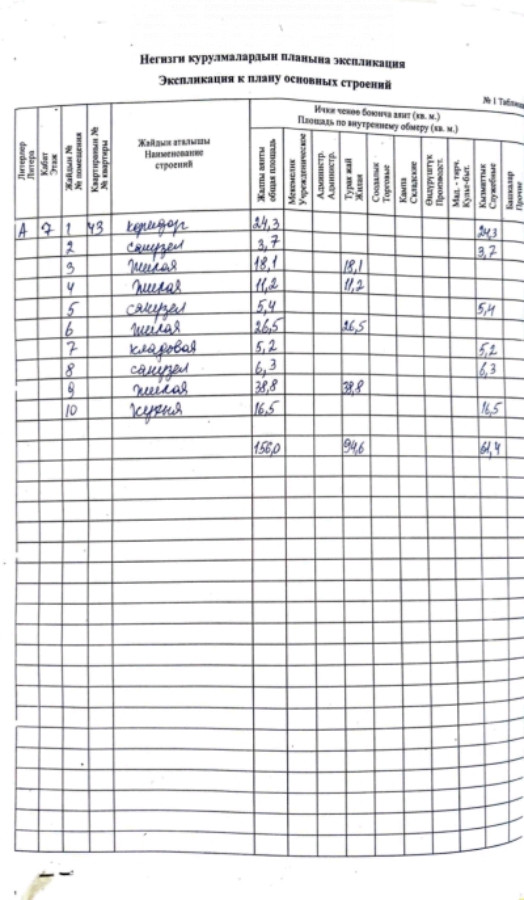 Негизги курулмалардын планына экспликация
Экспликация к плану основных строений
№ 1 Таблица
Литерлер Литера
Кабат Этаж
Жайдын № № помещения
Квартиранын № № квартиры
Жайдын аталышы Наименование строений
Ички ченөө боюнча аянт (кв. м.)
Площадь по внутреннему обмеру (кв. м.)
Жалпы аянты общая площадь
Мекемелик Учрежденическое
Администр. Администр.
Турак жай Жилая
Соодалык Торговые
Кампа Складские
Өндүрүштүк Производст.
Мад. - тирч. Культ-быт.
Кызматтык Служебные
Башкалар Прочие
А 7 1 43 коридор 24,3 24,3
2 санузел 3,7 3,7
3 жилая 18,1 18,1
4 жилая 11,2 11,2
5 санузел 5,4 5,4
6 жилая 26,5 26,5
7 кладовая 5,2 5,2
8 санузел 6,3 6,3
9 жилая 38,8 38,8
10 кухня 16,5 16,5
156,0 94,6 61,4